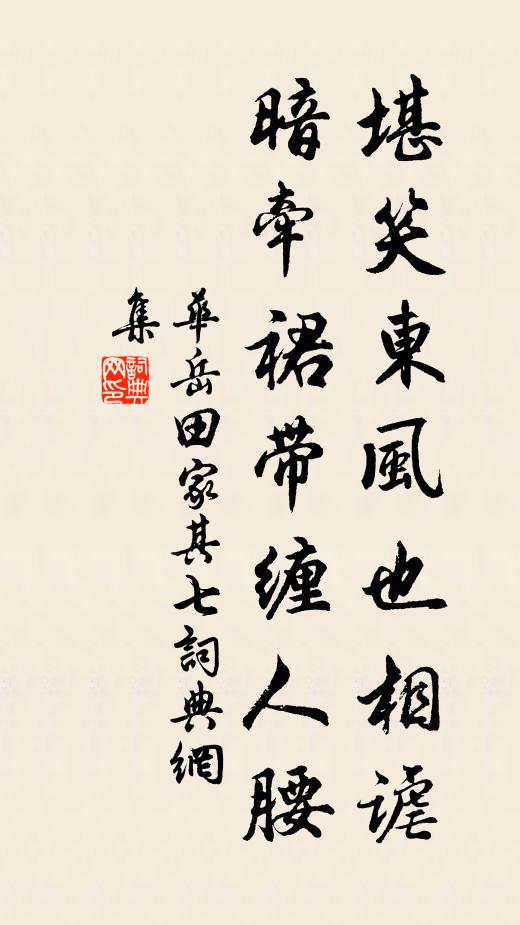 堪笑東風也相謔
暗牽裙帶纏人腰
華岳田家其七詞典網
集
詞典網印